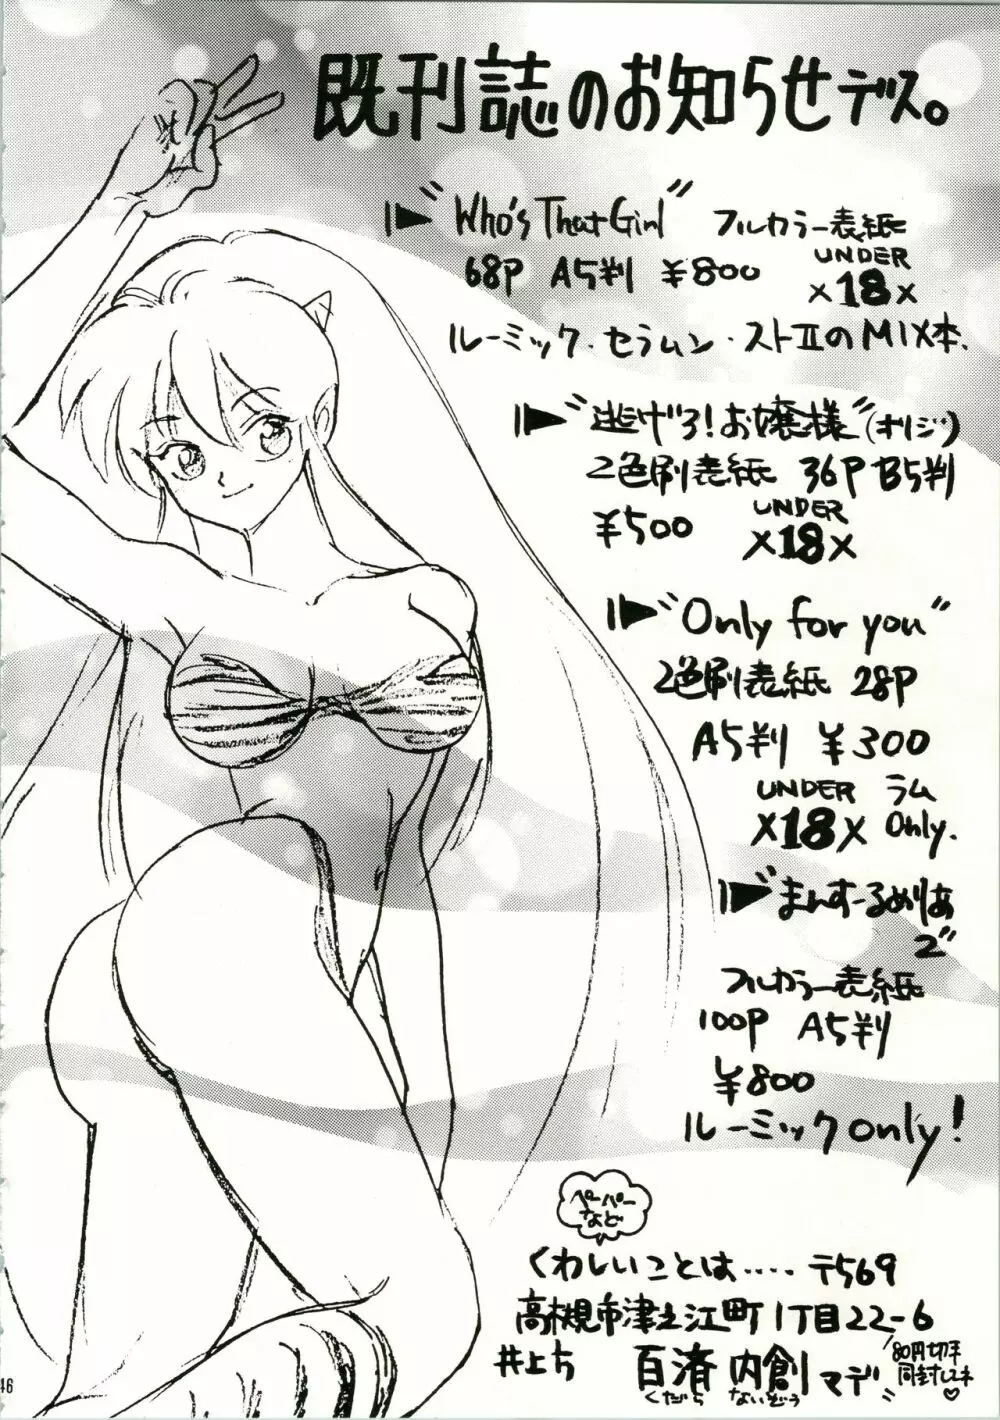 既刊誌のお知らせデス。
"Who's That Girl" フルカラー表紙
68P A5判 ¥800 UNDER
×18×
ルーミック・セラムン・ストⅡのMIX本.
"逃げろ!お嬢様"(オリジ)
2色刷表紙 36P B5判
¥500 UNDER
×18×
"Only for you"
2色刷表紙 28P
A5判 ¥300
UNDER ラム
×18× Only.
"まんすーるめりあ
2"
フルカラー表紙
100P A5判
¥800
ルーミックonly!
ペーパー
など
くわしいことは‥‥ 〒569
高槻市津之江町1丁目22-6
井上方 百済 内創 マデ
くだら ないぞう
80円切手
同封してネ♡
46